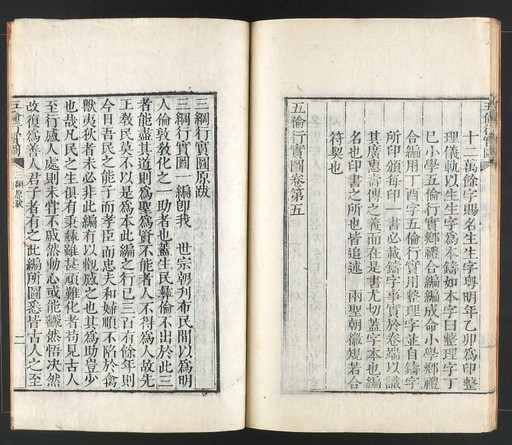 十二萬餘字賜名生生字粤明年乙卯爲印整
理儀軌以生生字爲本鑄如本字曰整理字丁
巳小學五倫行實鄉禮合編編成命小學鄉禮
合編用丁酉字五倫行實用整理字並自鑄字
所印頒每印一書必載鑄字事實於卷端以識
其廣惠壽傳之義而在是書尤切蓋字本也編
名也印書之所也皆追述 兩聖朝徽規若合
符契也
五倫行實圖卷第五
三綱行實圖原跋
三綱行實圖一編卽我 世宗朝刋布民間以爲明
人倫敦敎化之一助者也蓋生民彝倫不出於此三
者能盡其道則爲聖爲賢不能者人不得爲人故先
王敎民莫不以是爲本此編之行已三百有餘年則
今日吾民之能子而孝臣而忠夫和婦順不陷於禽
獸夷狄者未必非此編有以觀感之也其爲助豈少
也哉凡民之生俱有秉彝雖甚頑難化者苟見古人
至行感人處則未甞不戚然動心或能飜然悟决然
改復爲善人君子者有之此編所圖悉皆古人之至
五倫行實圖
三綱原跋
一